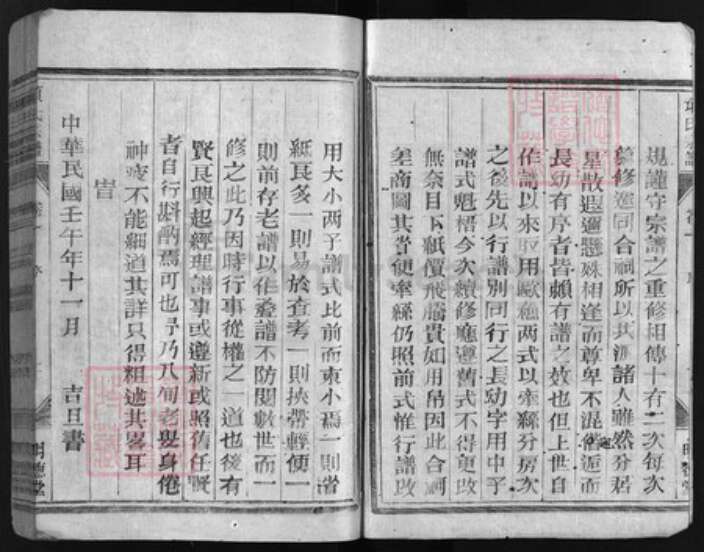 規謹守宗譜之重修相傳十有二次每次
修運同合祠所以共派諸人雖然分居
星散遐邇懸殊相逢而尊卑不混俗逅而
長幼有序者皆賴有譜之效也但上世自
作譜以來取用歐蘇两式以牽絲分房次
之後先以行譜別同行之長幼字用中子
譜式魁梧今次續修應遵舊式不得更改
無奈目下紙價飛騰貴如用帛因此合祠
差商圖其省便牽絲仍照前式惟行譜改
用大小两子譜式比前而東小爲一則省
紙良多一則易於查考一則挾帶輕便一
則前存老譜以作叅譜不防閱數世而一
修之此乃因時行事從權之一道也後有
賢良興起經理譜事或遵新或照舊任
者自行斟酌焉可也予乃八旬老叟身倦
神疲不能細道其詳只得粗述其畧耳
旹
中華民國壬午年十一月 吉旦書
明德堂